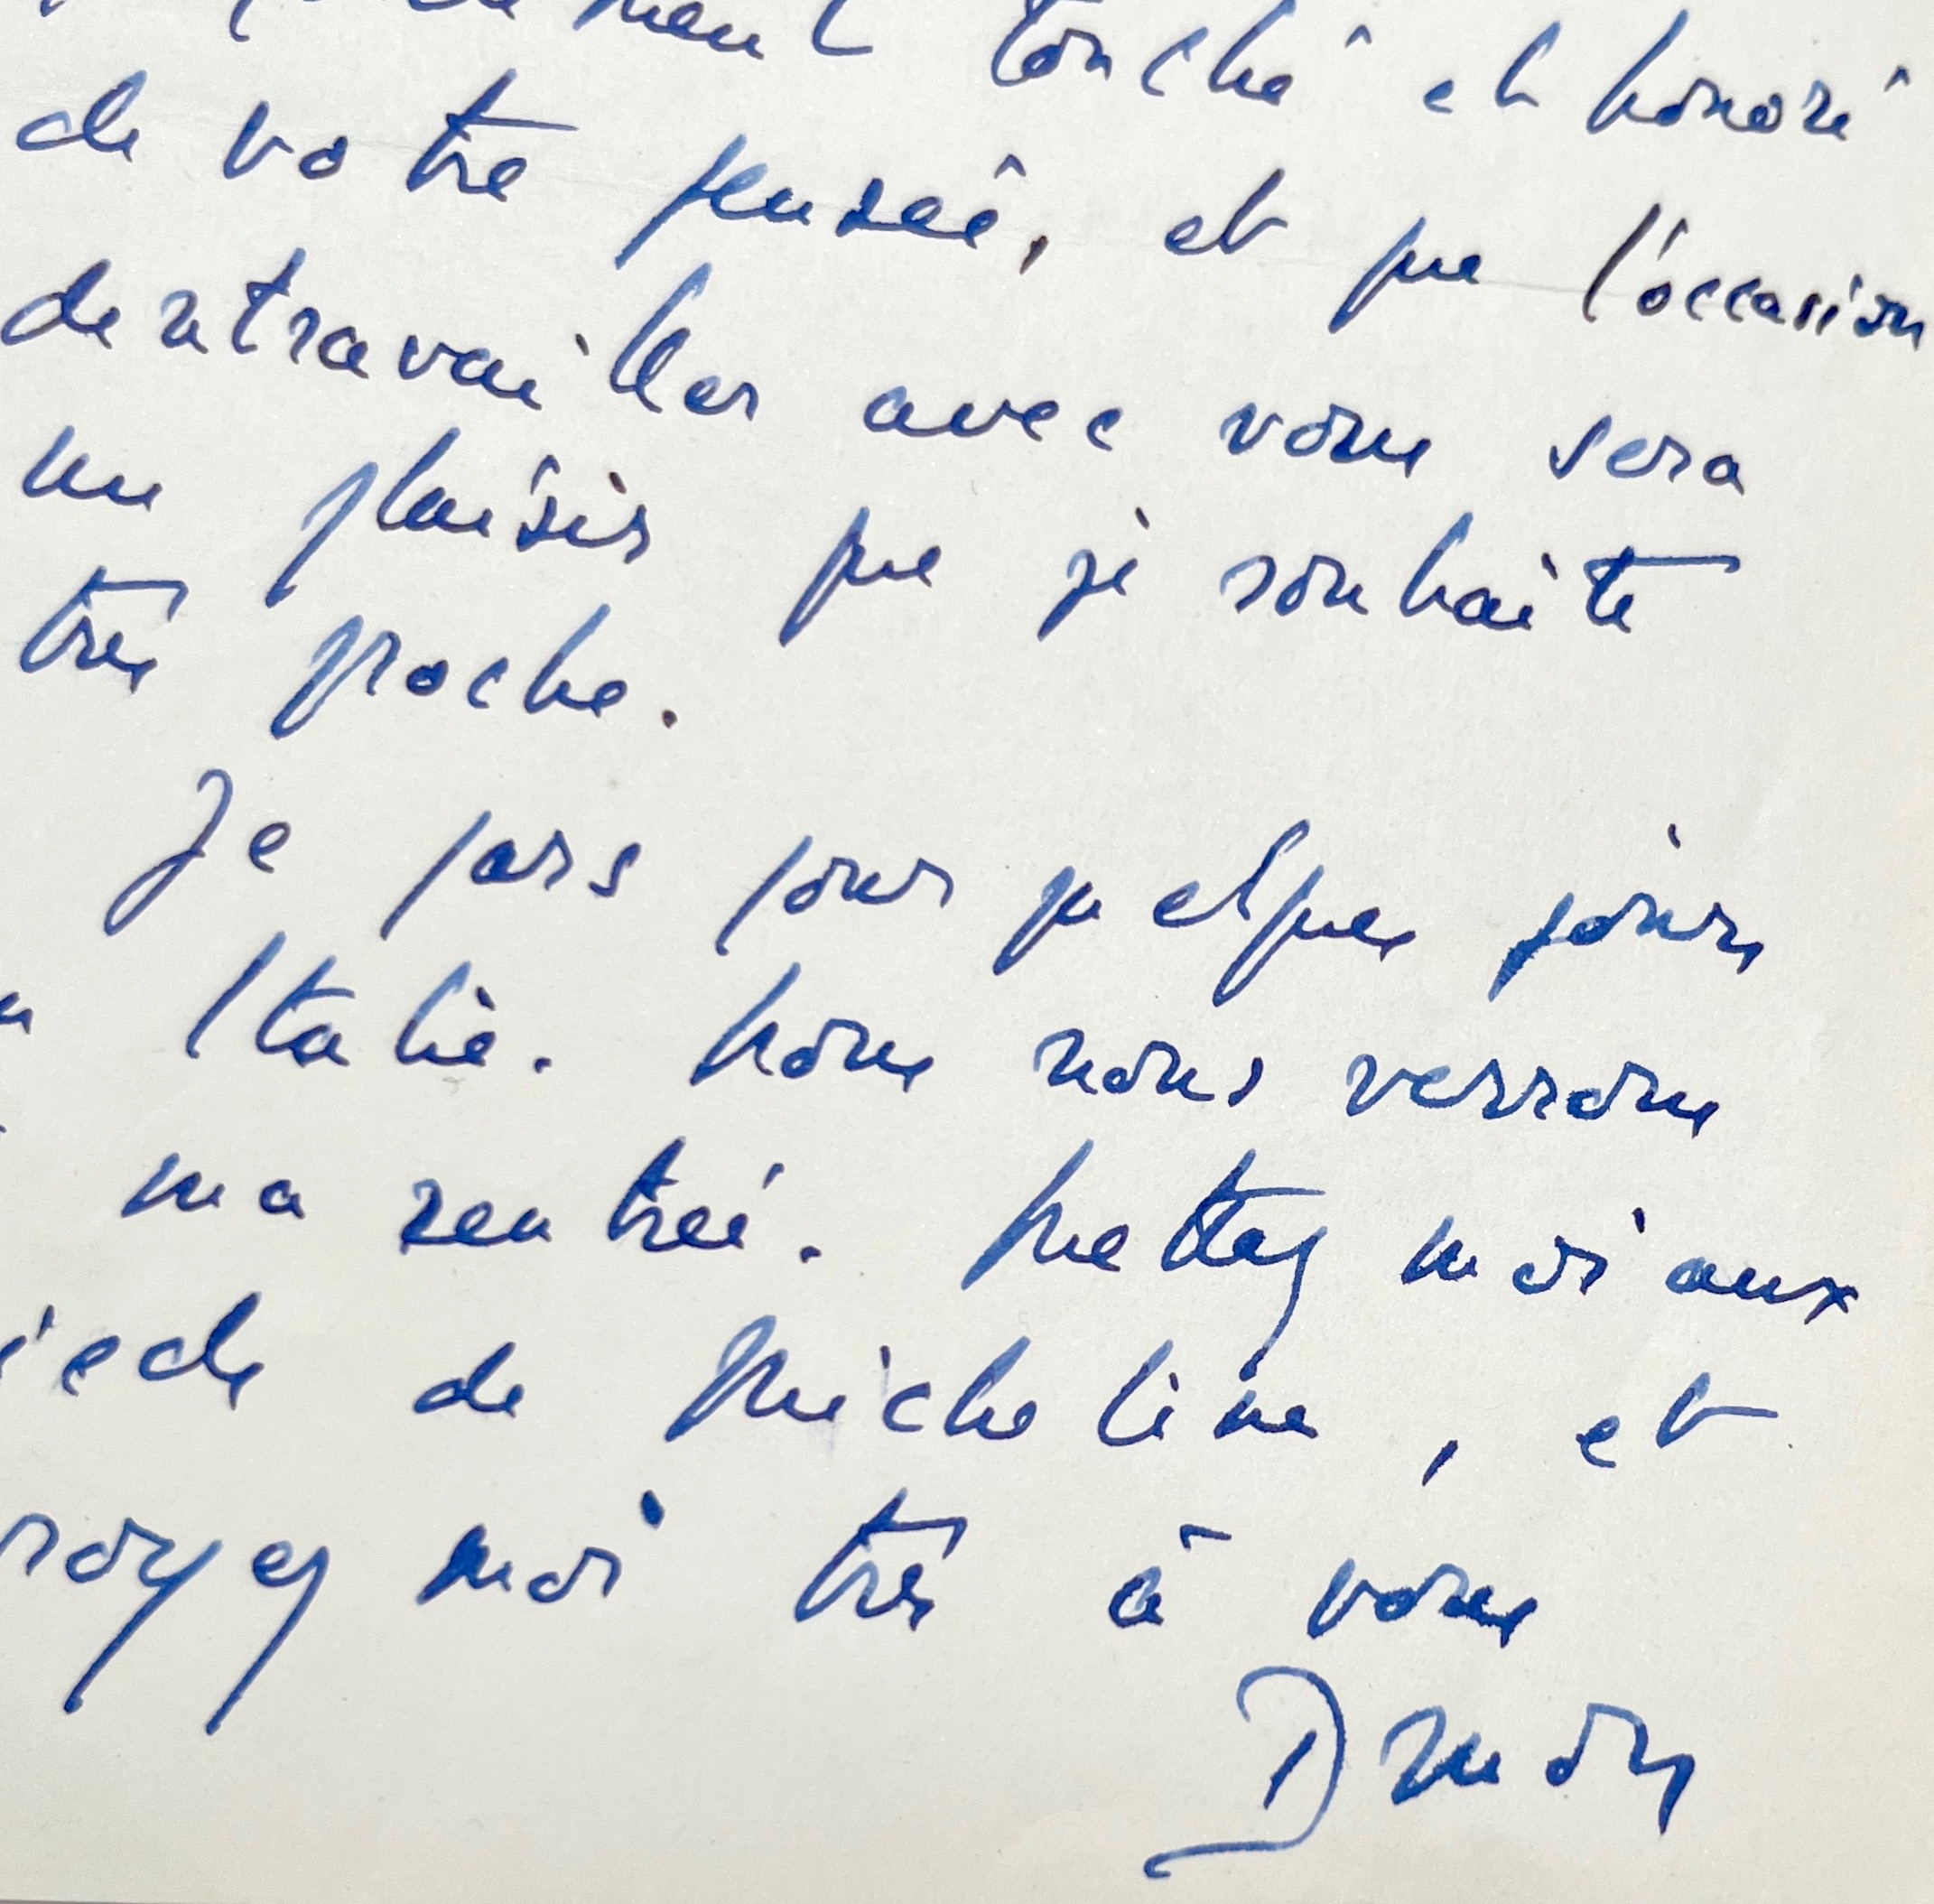 touché et honoré
de votre pensée, et que l'occasion
de retravailler avec vous sera
un plaisir que je souhaite
très proche.
Je pars pour quelques jours
Italie. Nous nous verrons
ma rentrée. Mettez moi aux
de Micheline, et
royez moi très à vous
Druon